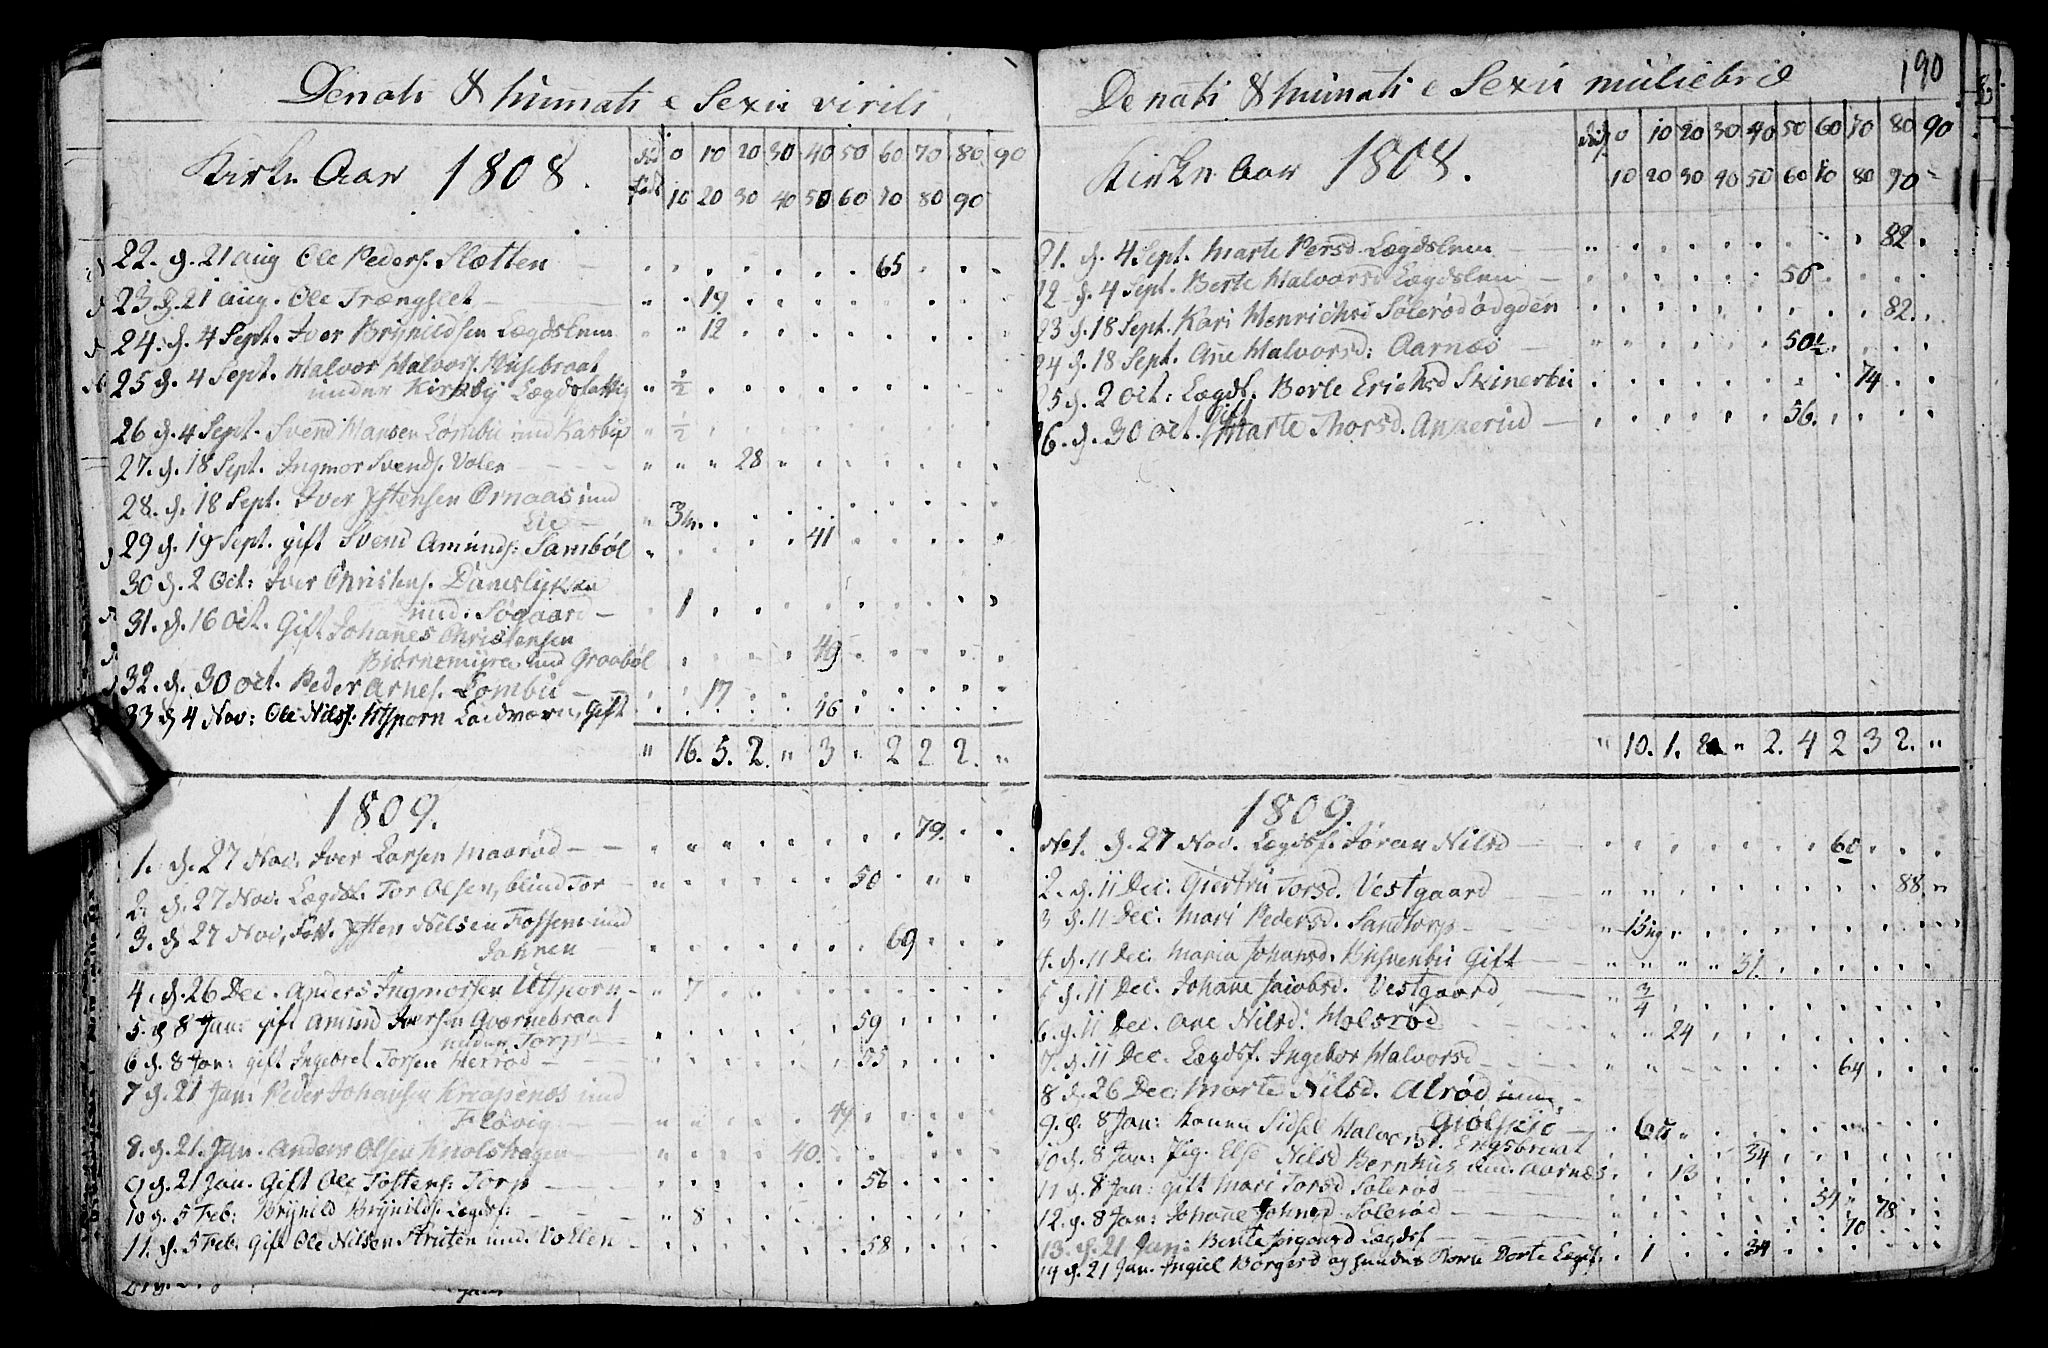 Denati & humati e Sexu virili
Kirke Aar 1808.
død født 0 10 20 30 40 50 60 70 80 90
10 20 30 40 50 60 70 80 90
22. d. 21 aug Ole Peders. Slotten 65
23 d. 21 aug. Ole Trængslet 19
24. d. 4 Sept. Iver Brynildsen Lægdslem 12
25 d. 4 Sept. Halvor Halvors. Husebraat
under Kirkby Lægdslottig ½
26 d. 4 Sept. Svend Hansen Lombu und Kasbye ½
27. d. 18 Sept. Ingmor Svends. Valer 28
28. d. 18 Sept. Iver Ystensen Ornaas und
Lie 3/4
29 d. 19 Sept. gift Svend Amunds: Sambøl 41
30 d. 2 Oct: Iver Christens. Daneslykken
und: Søgaard 1
31. d. 16 Oct. Gift Johanes Christensen
Biørnemyra und Graabøl 49
32. d. 30 Oct. Peder Arnes. Lombu 17
33 d 4 Nov: Ole Nils. Utsporn Gift 46
" 16. 5. 2. " 3 " 2 2 2. "
1809.
1. d. 27 Nov: Iver Larsen Maarød 79.
2. d. 27 Nov: Lægdsl. Tor Olsen, blind Tor 50
3. d 27 Nov. Ysten Nilsen Fossem und
69
4. d. 26 Dec. Anders Ingmorsen Utsporn 7
5. d 8 Jan: gift Amund Iversen Qvernebraat
under Torp 59
6 d. 8 Jan: gift Ingebret Torsen Herrød 55
7 d. 21 Jan: Peder Johansen Knapenes und
Fløvig 44
8. d. 21. Jan. Anders Olsen Knolshagen 40.
9 d. 21 Jan. Gift Ole Tostens: Torp 56
10 d. 5 Feb: Brynild Brynilds. Lægdsl: 8
11. d. 5 Feb. Gift Ole Nilsen und. Vollen 58
Denati & humati e Sexu muliebrie
190
Kirke Aar 1808.
0 10 20 30 40 50 60 70 80 90
10 20 30 40 50 60 70 80 90
21. d. 4 Sept. Marte Persd. Lægdslem 82
22 d. 4 Sept. Berte Halvorsd Lægdslem 56
23 d. 18 Sept. Kari Henrichsd Solerød ødgden 82.
24 d. 18 Sept. Ane Halvorsd: Aarnæs 50½
25 d. 2 Oct: Lægdsl. Berte Erichsd Skinerbu 74
26. d. 30 Oct. Gift Marte Thorsd. Annerud 56.
" 10. 1. 2 " 2. 4 2 3 2. "
1809.
No 1. d. 27 Nov. Lægdsl. Jøran Nilsd 60
2. d. 11 Dec. Giertru Torsd. Vestgaard 88
3 d. 11 Dec. Mari Pedersd. Sandtorp 15 ug
4. d. 11 Dec. Maria Johansd. Gift 31
5 d. 11 Dec. Johane Jacobsd. Vestgaard 3/4
6. d. 11 Dec. Ane Nilsd: Holsrød 24
7. d. 11 Dec. Lægdsl. Ingebor Halvorsd 64
8 d. 26 Dec. Marte Nilsd. Alrød und
9. d. 8 Jan: Konen Sidsel Halvorsd. Engsbraat
10 d. 8 Jan: Pig. Else Nilsd Bernhus und Aarnæs 13
11 d. 8 Jan: gift Mari Torsd Solerød 54
12. d. 8 Jan: Johane Solerød 78
13. d. 21 Jan: Berte Jørgensd Lægdsl 70
14 d. 21 Jan. Ingiel Borgersd og hendes Dorte Lægdsl. 1 34